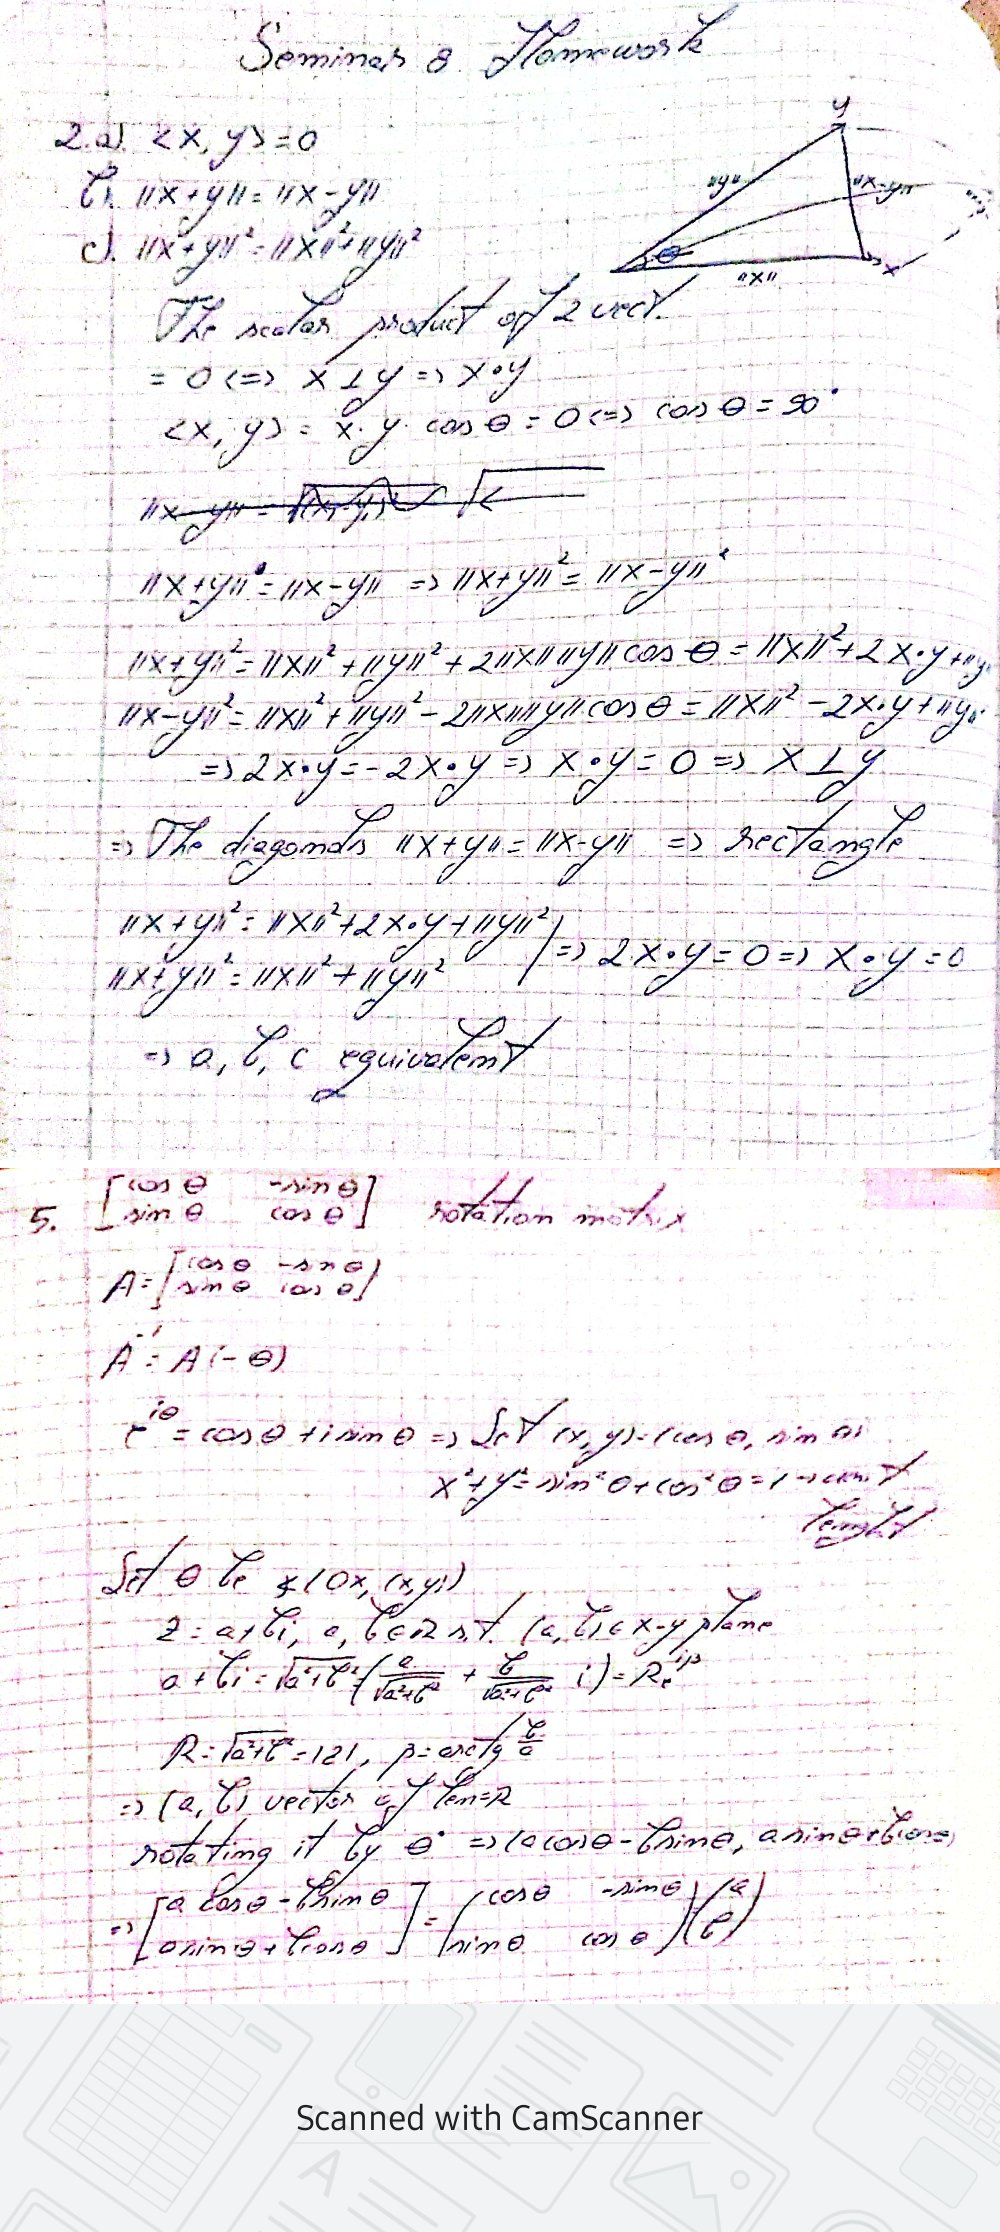 Seminar 8 Homework
2.a). <x, y> = 0
b). ||x+y|| = ||x-y||
c). ||x+y||² = ||x||²+||y||²
y
||y||
||x-y||
θ
||x||
x
The scalar product of 2 vect.
= 0 <=> x ⊥ y => x•y
<x, y> = x·y· cos θ = 0 <=> cos θ = 90°
||x+y|| = ||x-y|| => ||x+y||² = ||x-y||²
||x+y||² = ||x||² + ||y||² + 2||x|| ||y|| cos θ = ||x||² + 2x•y + ||y
||x-y||² = ||x||² + ||y||² - 2||x|| ||y|| cos θ = ||x||² - 2x•y + ||y||
=> 2x•y = -2x•y => x•y = 0 => x ⊥ y
=> The diagonals ||x+y|| = ||x-y|| => rectangle
||x+y||² = ||x||² + 2x•y + ||y||²
||x+y||² = ||x||² + ||y||²
=> 2x•y = 0 => x•y = 0
=> a, b, c equivalent
5. [cos θ -sin θ
sin θ cos θ] rotation matrix
A = [cos θ -sin θ
sin θ cos θ]
A⁻¹ = A(-θ)
e^iθ = cos θ + i sin θ => Let (x, y) = (cos θ, sin θ)
x²+y² = sin² θ + cos² θ = 1 → unit
lenght
Let θ be ∢(Ox, (x,y))
z = a+bi, a, b ∈ R s.t. (a, b) ∈ x-y plane
a + bi = √a²+b² (a/√a²+b² + b/√a²+b² i) = Re^iβ
R = √a²+b² = |z|, β = arctg b/a
=> (a, b) vector of len=R
rotating it by θ° => (a cos θ - b sin θ, a sin θ + b cos θ)
=> [a cos θ - b sin θ
a sin θ + b cos θ] = (cos θ -sin θ
sin θ cos θ)(a
b)
Scanned with CamScanner